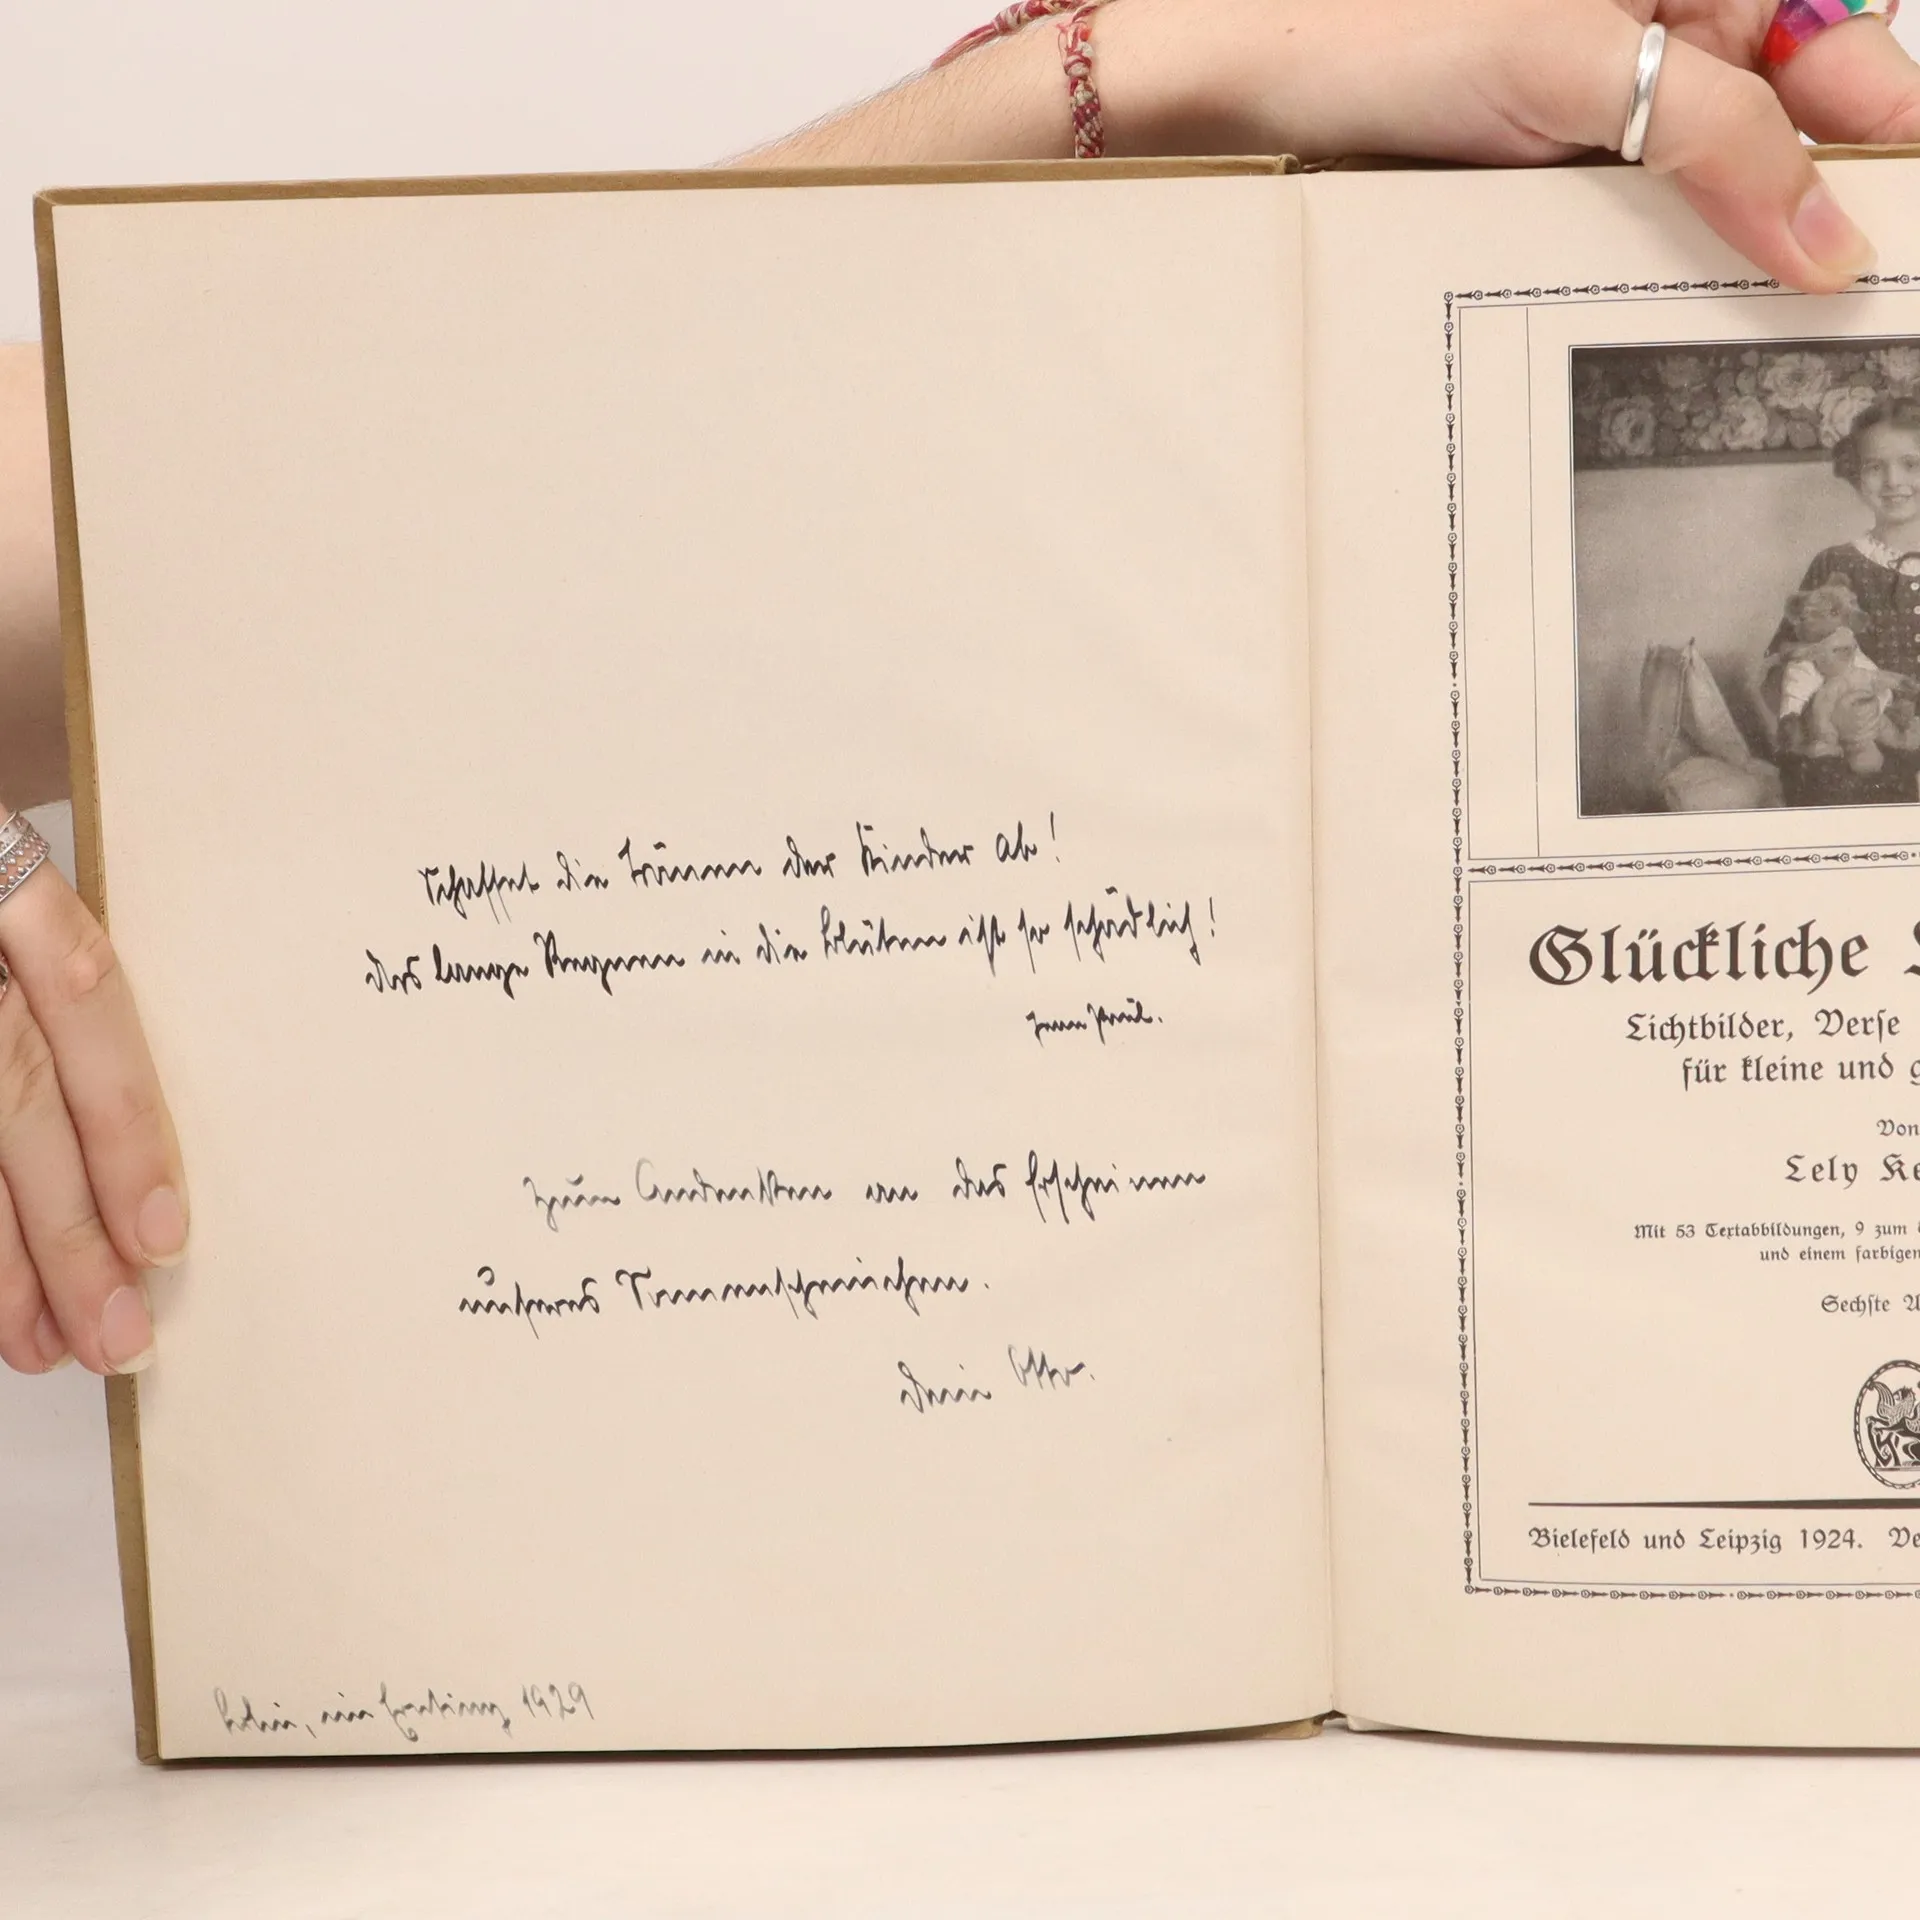 Schaffet die Tränen der Kinder ab!
das lange Regnen in die Blüten ist so schädlich!
Jean Paul.
Zum Andenken an das Erscheinen
unseres Sonnenscheinchens.
Dein Otto.
im 1929
Glückliche
Lichtbilder, Verse
für kleine und
Von
Lely
Mit 53 Textabbildungen, 9 zum
und einem farbigen
Sechste
Bielefeld und Leipzig 1924.